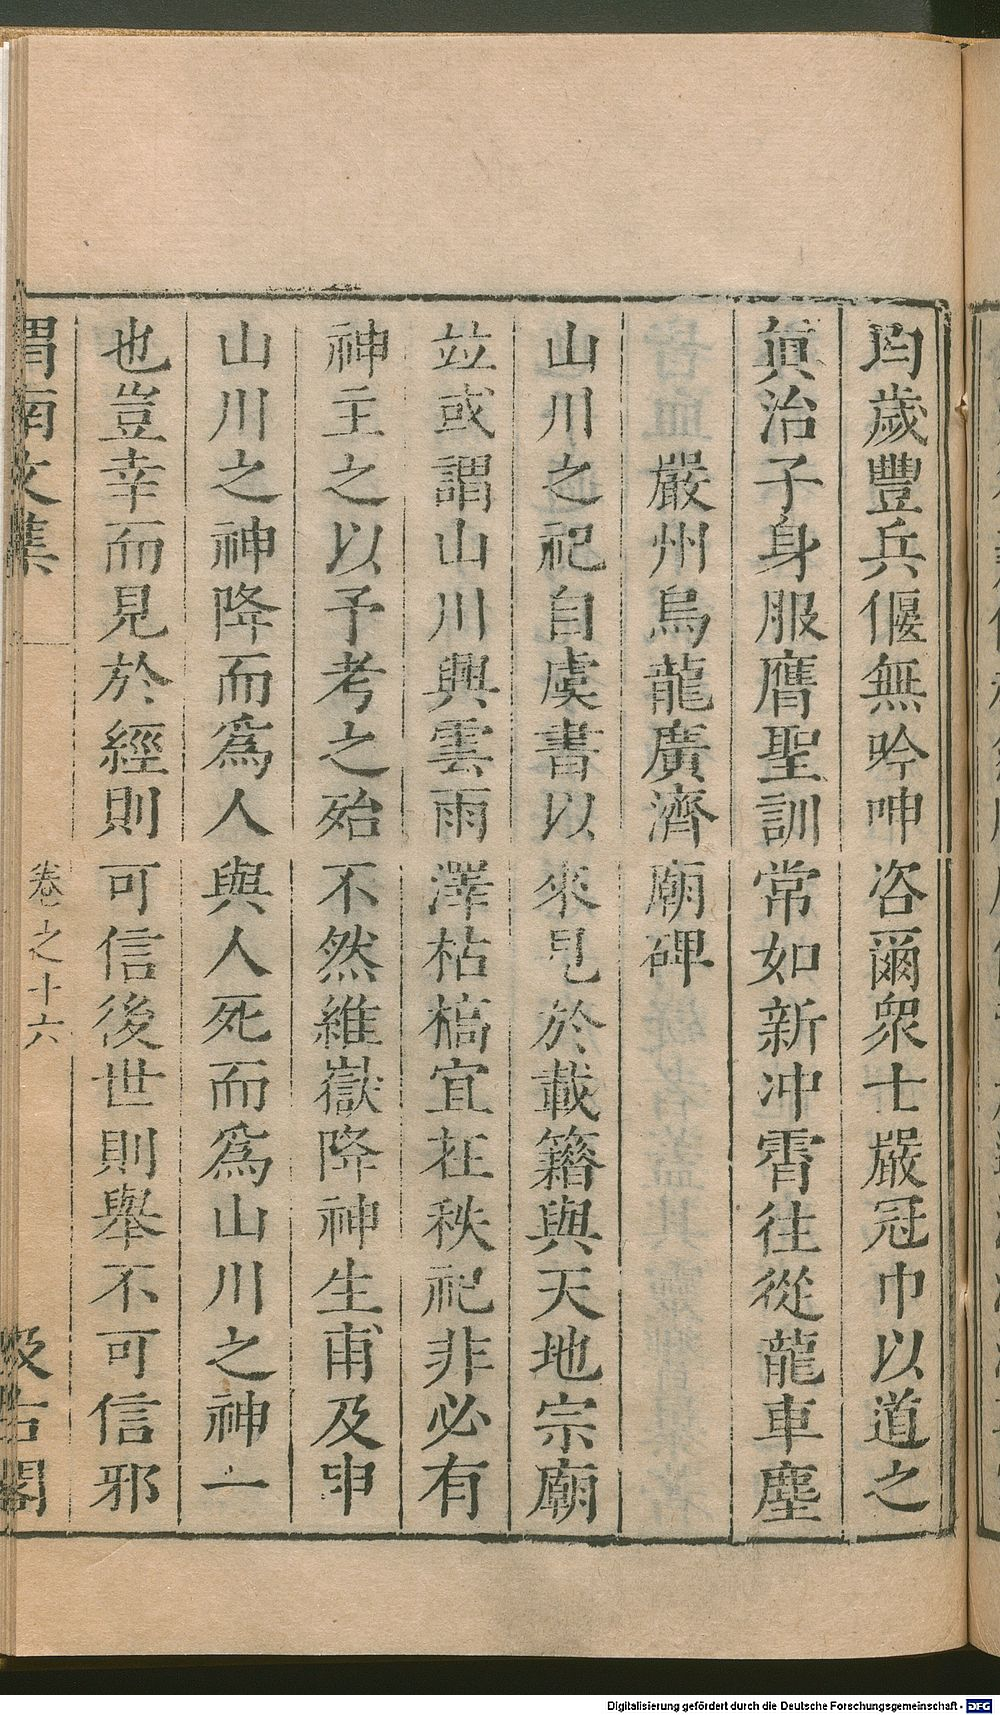 均歲豐兵偃無吟呻咨爾衆士嚴冠巾以道之
眞治子身服膺聖訓常如新冲霄往從龍車塵
嚴州烏龍廣濟廟碑
山川之祀自虞書以來見於載籍與天地宗廟
竝或謂山川興雲雨澤枯槁宜在秩祀非必有
神主之以予考之殆不然維嶽降神生甫及申
山川之神降而爲人與人死而爲山川之神一
也豈幸而見於經則可信後世則舉不可信邪
渭南文集 卷之十六 汲古閣
Digitalisierung gefördert durch die Deutsche Forschungsgemeinschaft - DFG